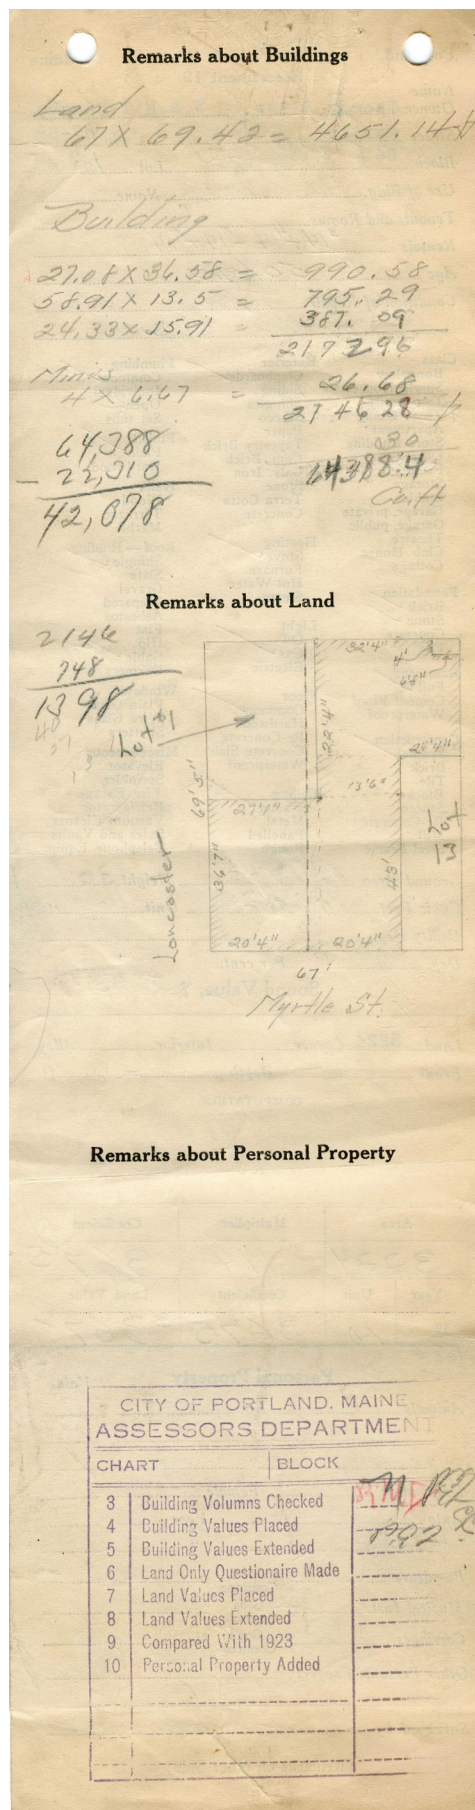 Remarks about Buildings
Land
67 X 69.42 = 4651.14
Building
27.08 X 36.58 = 990.58
58.91 X 13.5 = 795.29
24.33 X 15.91 = 387.09
2172 96
Minus
4 X 6.67 = 26.68
2146 28
30
64388.4
Cu.ft
64,388
- 22,310
42,078
Remarks about Land
2146
748
1398
Lot #1
32'4"
4'
6'8"
22'4"
24'4"
13'6"
69'5"
27'1"
Lot
36'7"
43'
Lancaster
20'4"
20'4"
67'
Myrtle St.
Remarks about Personal Property
CITY OF PORTLAND. MAINE
ASSESSORS DEPARTMENT
CHART BLOCK
3 Building Volumns Checked
4 Building Values Placed
5 Building Values Extended
6 Land Only Questionaire Made
7 Land Values Placed
8 Land Values Extended
9 Compared With 1923
10 Personal Property Added